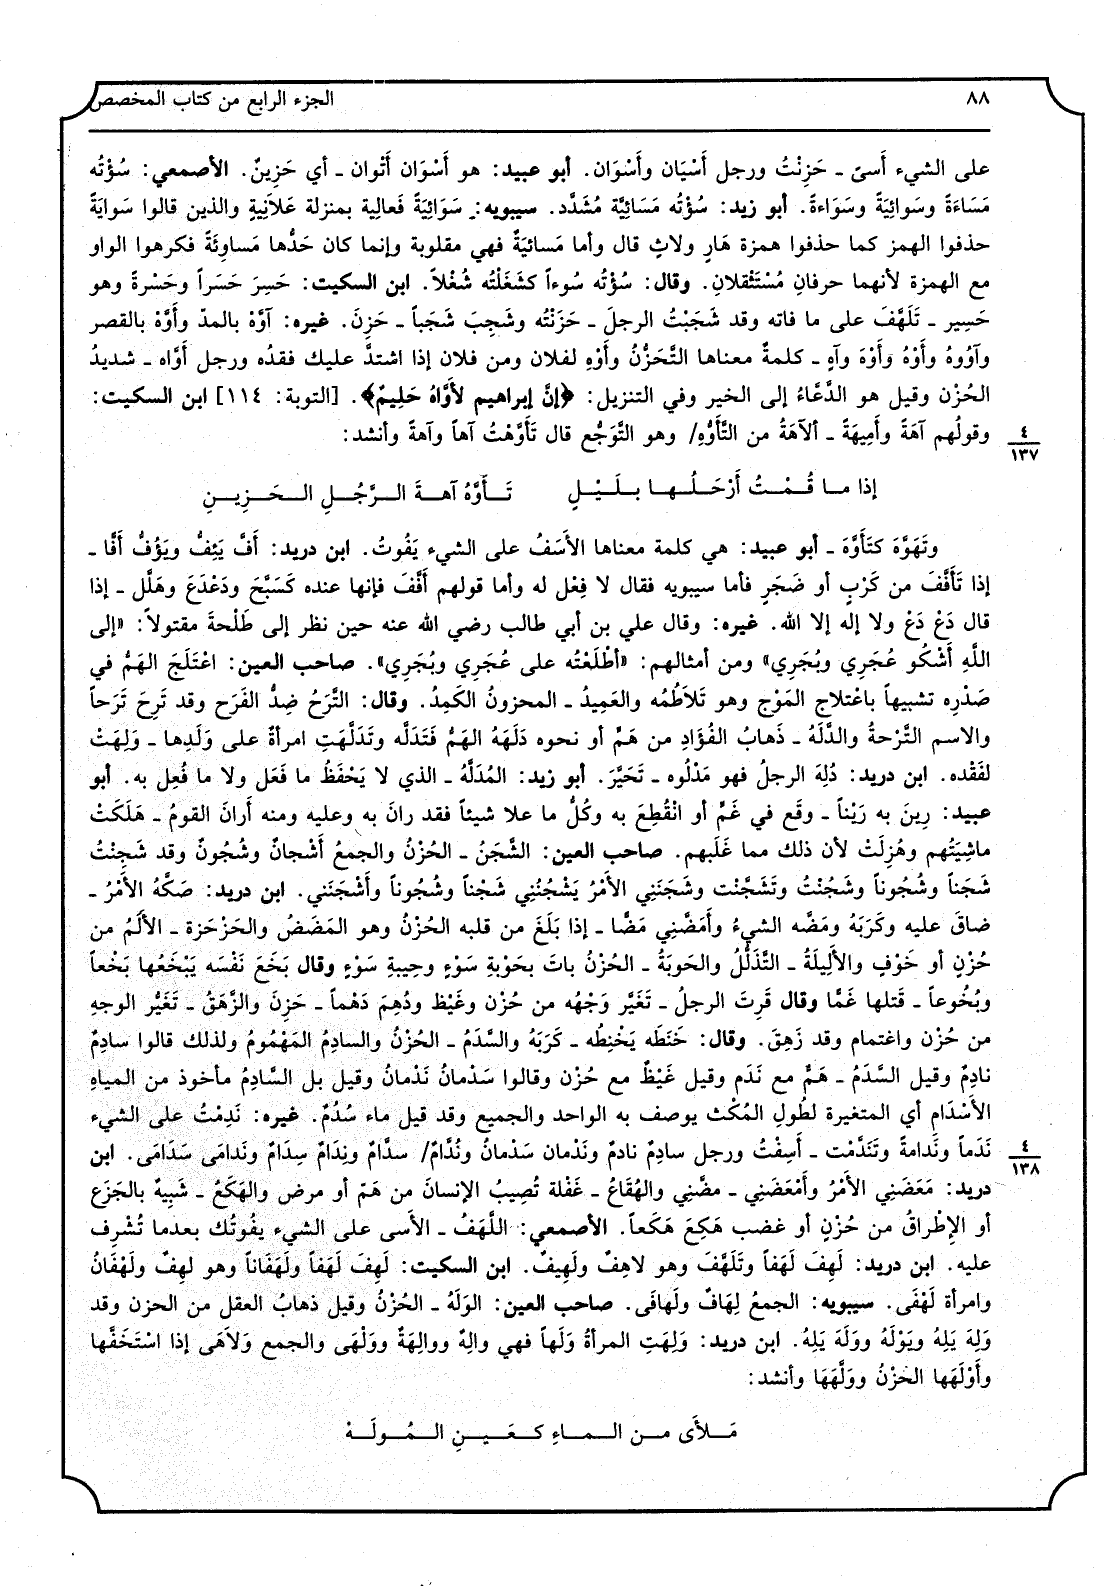 ٨٨ الجزء الرابع من كتاب المخصص
على الشيء أسىً ـ حَزِنْتُ ورجل أَسْيَان وأَسْوَان. أبو عبيد: هو أَسْوَان أَتْوان ـ أي حَزِينٌ. الأصمعي: سُؤْتُه
مَسَاءَةً وسَوائِيَةً وسَوَاءةً. أبو زيد: سُؤْتُه مَسَائِيَّة مُشَدَّد. سيبويه: سَوَائِيَةً فَعالية بمنزلة عَلاَنِيةٍ والذين قالوا سَوايَةً
حذفوا الهمز كما حذفوا همزة هَارٍ ولاثٍ قال وأما مَسائيَةٌ فهي مقلوبة وإنما كان حَدُّها مَساوِئَةً فكرهوا الواو
مع الهمزة لأنهما حرفانِ مُسْتَثْقلانِ. وقال: سُؤْتُه سُوءاً كشَغَلْتُه شُغْلاً. ابن السكيت: حَسِرَ حَسَراً وحَسْرةً وهو
حَسِير ـ تَلَهَّفَ على ما فاته وقد شَجَبْتُ الرجلَ ـ حَزَنْتُه وشَجِبَ شَجَباً ـ حَزِنَ. غيره: آوَّهْ بالمدّ وأَوَّهْ بالقصر
وآوُوهُ وأَوْهُ وَأَوْهَ وآهٍ ـ كلمةٌ معناها التَّحَزُّنُ وأَوْهِ لفلان ومن فلان إذا اشتدَّ عليك فقدُه ورجل أَوَّاه ـ شديدُ
الحُزْن وقيل هو الدَّعَّاءُ إلى الخير وفي التنزيل: ﴿إنَّ إبراهيم لأوَّاهُ حَلِيمٌ﴾. [التوبة: ١١٤] ابن السكيت:
وقولُهم آهَةً وأَمِيهَةً ـ ألآهَةُ من التَّأَوُّهِ/ وهو التَّوَجُّع قال تَأَوَّهْتُ آهاً وآهةً وأنشد:
٤
١٣٧
إذا ما قُمْتُ أَرْحَلُها بلَيْلٍ تَأَوَّهُ آهةَ الرَّجُلِ الحَزِينِ
وتَهَوَّهَ كتَأَوَّهَ ـ أبو عبيد: هي كلمة معناها الأَسَفُ على الشيء يَفُوتُ. ابن دريد: أَفَّ يَئِفُّ ويَؤُفُّ أَفَّا ـ
إذا تَأَفَّفَ من كَرْبٍ أو ضَجَرٍ فأما سيبويه فقال لا فِعْل له وأما قولهم أَفَّفَ فإنها عنده كَسَبَّحَ ودَعْدَعَ وهَلَّل ـ إذا
قال دَعْ دَعْ ولا إله إلا الله. غيره: وقال علي بن أبي طالب رضي الله عنه حين نظر إلى طَلْحةَ مقتولاً: «إلى
اللَّهِ أَشْكُو عُجَرِي وبُجَرِي» ومن أمثالهم: «أَطْلَعْتُه على عُجَرِي وبُجَرِي». صاحب العين: اعْتَلَجَ الهَمُّ في
صَدْرِه تشبيهاً باعْتلاج المَوْج وهو تَلاَطُمُه والعَمِيدُ ـ المحزونُ الكَمِدُ. وقال: التَّرَحُ ضِدُّ الفَرَح وقد تَرِحَ تَرَحاً
والاسم التَّرْحةُ والدَّلَهُ ـ ذَهابُ الفُؤَادِ من هَمٍّ أو نحوه دَلَهَهُ الهَمُّ فَتَدَلَّه وتَدَلَّهَتِ امرأةٌ على وَلَدِها ـ وَلِهَتْ
لفَقْده. ابن دريد: دُلِهَ الرجلُ فهو مَدْلُوه ـ تَحَيَّرَ. أبو زيد: المُدَلَّهُ ـ الذي لا يَحْفَظُ ما فَعَل ولا ما فُعِل به. أبو
عبيد: رِينَ به رَيْناً ـ وقَع في غَمٍّ أو انْقُطِعَ به وكُلُّ ما علا شيئاً فقد رانَ به وعليه ومنه أرانَ القومُ ـ هَلَكَتْ
ماشِيَتُهم وهُزِلَتْ لأن ذلك مما غَلَبهم. صاحب العين: الشَّجَنُ ـ الحُزْنُ والجمعُ أَشْجانٌ وشُجُونٌ وقد شَجِنْتُ
شَجَناً وشُجُوناً وشَجُنْتُ وتَشَجَّنْت وشَجَنَنِي الأَمْرُ يَشْجُنُنِي شَجْناً وشُجُوناً وأَشْجَنَني. ابن دريد: صَكَّهُ الأَمْرُ ـ
ضاقَ عليه وكَرَبَهُ ومَضَّه الشيءُ وأَمَضَّنِي مَضًّا ـ إذا بَلَغَ من قلبه الحُزْنُ وهو المَضَضُ والحَزْحَزة ـ الأَلَمُ من
حُزْنٍ أو خَوْفٍ والأَلِيلَةُ ـ التَّذَلُّلُ والحَوبَةُ ـ الحُزْنُ باتَ بحَوْبةِ سَوْءٍ وحِيبةِ سَوْءٍ وقال بَخَعَ نَفْسَه يَبْخَعُها بَخْعاً
وبُخُوعاً ـ قَتلها غَمًّا وقال قَرِتَ الرجلُ ـ تَغَيَّر وَجْهُه من حُزْنٍ وغَيْظ ودُهِمَ دَهْماً ـ حَزِنَ والزَّهَقُ ـ تَغَيُّر الوجهِ
من حُزْن واغتمام وقد زَهِقَ. وقال: خَنَطَه يَخْنِطُه ـ كَرَبَهُ والسَّدَمُ ـ الحُزْنُ والسادِمُ المَهْمُومُ ولذلك قالوا سادِمٌ
نادِمٌ وقيل السَّدَمُ ـ هَمٌّ مع نَدَم وقيل غَيْظٌ مع حُزْن وقالوا سَدْمانُ نَدْمانُ وقيل بل السَّادِمُ مأخوذ من المياهِ
الأَسْدَام أي المتغيرة لطُولِ المُكْث يوصف به الواحد والجميع وقد قيل ماء سُدُمٌ. غيره: نَدِمْتُ على الشيء
نَدَماً ونَدامةً وتَنَدَّمْت ـ أَسِفْتُ ورجل سادِمٌ نادمٌ ونَدْمان سَدْمانُ ونُدَّامٌ/ سدَّامٌ ونِدَامٌ سِدَامٌ ونَدامَى سَدَامَى. ابن
٤
١٣٨
دريد: مَعَضَنِي الأَمْرُ وأَمْعَضَنِي ـ مضَّنِي والهُقَاعُ ـ غَفْلة تُصِيبُ الإنسانَ من هَمّ أو مرض والهَكَعُ ـ شَبِيهٌ بالجَزَع
أو الإِطْراقُ من حُزْنٍ أو غضب هَكِعَ هَكَعاً. الأصمعي: اللَّهَفُ ـ الأَسى على الشيء يفُوتُك بعدما تُشْرِف
عليه. ابن دريد: لَهِفَ لَهَفاً وتَلَهَّفَ وهو لاهِفٌ ولَهِيفٌ. ابن السكيت: لَهِفَ لَهَفاً ولَهَفَاناً وهو لَهِفٌ ولَهْفَانُ
وامرأة لَهْفَى. سيبويه: الجمعُ لِهَافٌ ولَهافَى. صاحب العين: الوَلَهُ ـ الحُزْنُ وقيل ذهابُ العقل من الحزن وقد
وَلِهَ يَلِهُ ويَوْلَهُ ووَلَهَ يَلِهُ. ابن دريد: وَلِهَتِ المرأةُ وَلَهاً فهي والِهٌ ووالِهَةٌ ووَلْهَى والجمع وَلاَهَى إذا اسْتَخَفَّها
وأَوْلَهَها الحُزْنُ ووَلَّهَهَا وأنشد:
مَلأَى من الماءِ كعَينِ المُولَهْ